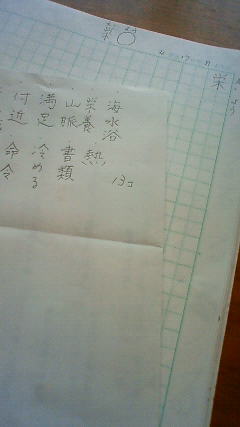 海水浴
栄養
山脈
満足
付近
熱
書類
冷める
命令
13コ
栄
栄